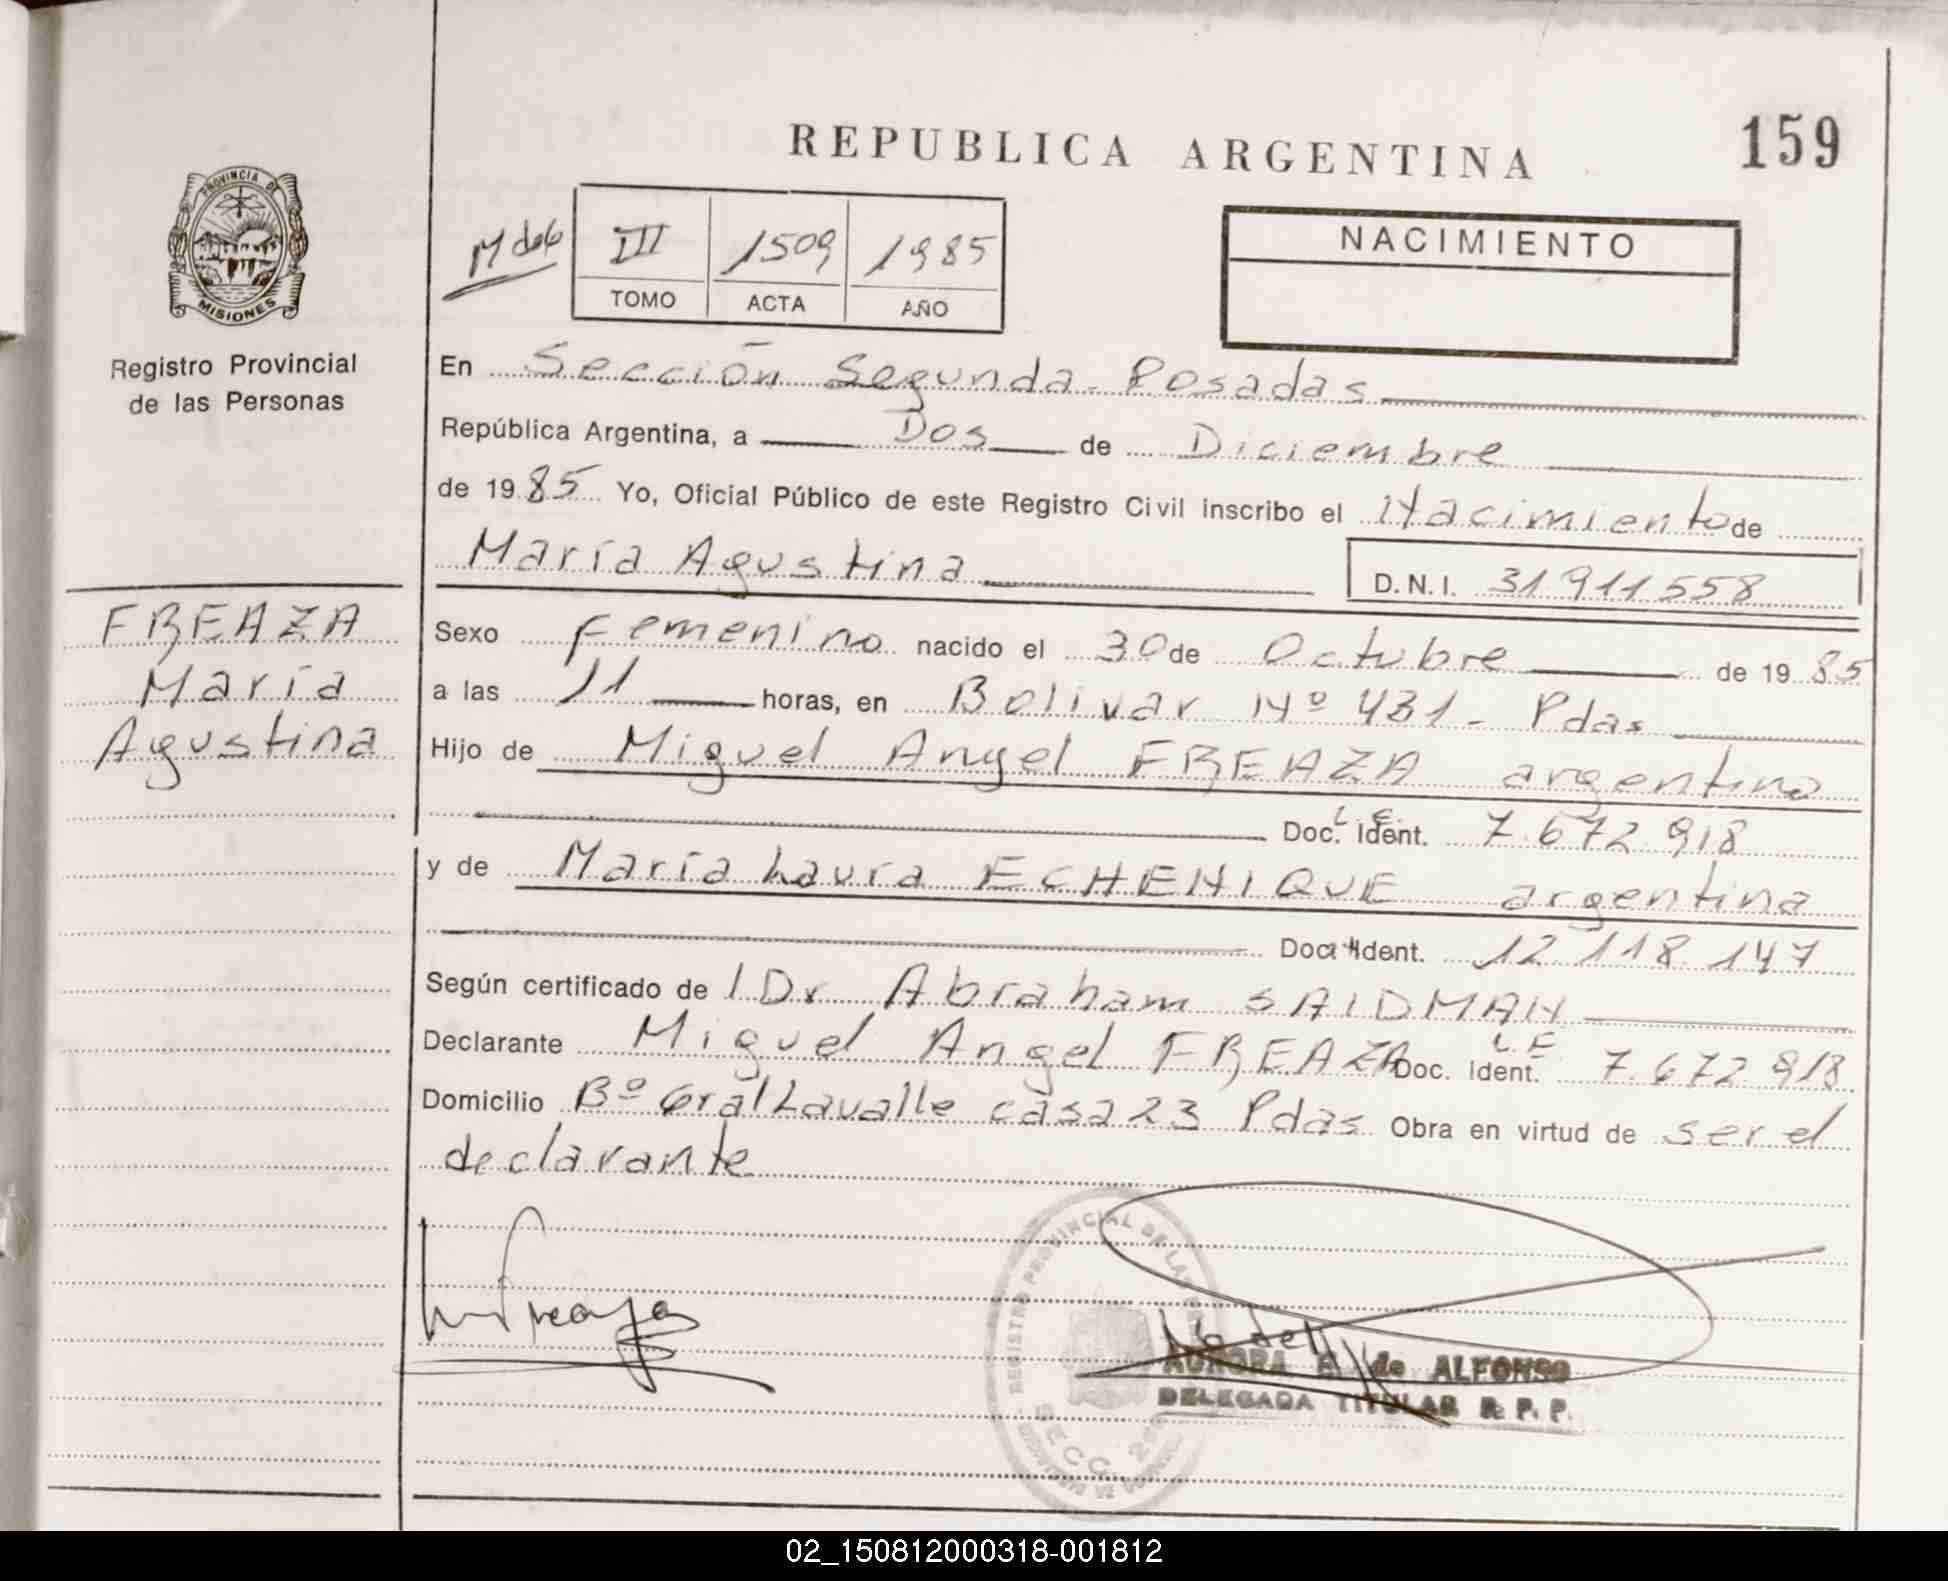 REPUBLICA ARGENTINA
159
PROVINCIA DE
MISIONES
Registro Provincial
de las Personas
III 1509 1985
TOMO ACTA AÑO
NACIMIENTO
En Sección Segunda - Posadas
República Argentina, a Dos de Diciembre
de 1985 Yo, Oficial Público de este Registro Civil inscribo el Nacimiento de
María Agustina D.N.I. 31 911 558
FREAZA
María
Agustina
Sexo Femenino nacido el 30 de Octubre de 1985
a las 11 horas, en Bolivar Nº 431 - Pdas
Hijo de Miguel Angel FREAZA argentino
L.E.
Doc. Ident. 7.672.918
y de María Laura ECHENIQUE argentina
Doc. Ident. 12.118.147
Según certificado de l Dr Abraham SAIDMAN
Declarante Miguel Angel FREAZA Doc. Ident. L.E. 7.672.918
Domicilio Bº Gral Lavalle casa 23 Pdas Obra en virtud de ser el
declarante
REGISTRO PROVINCIAL DE LAS
SECC. 2
AURORA de ALFONSO
DELEGADA TITULAR R. P. P.
02_150812000318-001812